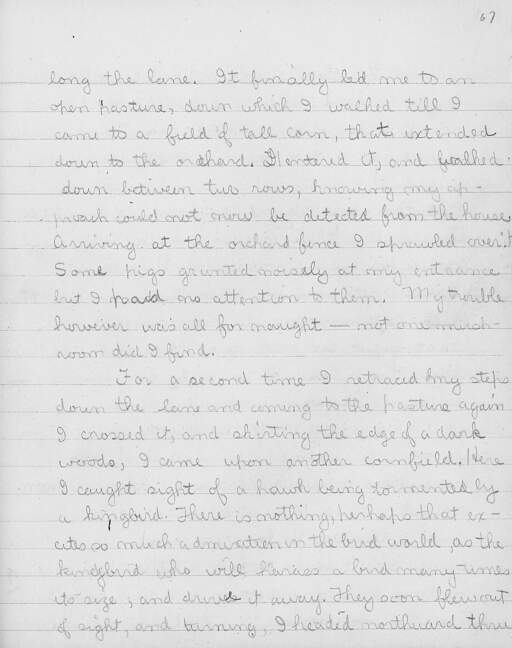 67
long the lane. It finally led me to an
open pasture, down which I walked till I
came to a field of tall corn, that extended
down to the orchard. I entered it, and walked
down between two rows, knowing my ap-
proach could not now be detected from the house
Arriving at the orchard fence I sprawled over it
Some pigs grunted noisely at my entrance
but I paid no attention to them. My trouble
however was all for naught — not one mush-
room did I find.
For a second time I retraced my steps
down the lane and coming to the pasture again
I crossed it, and skirting the edge of a dark
woods, I came upon another cornfield. Here
I caught sight of a hawk being tormented by
a kingbird. There is nothing, perhaps that ex-
cites so much admiration in the bird world, as the
kingbird who will harass a bird many times
its size, and drive it away. They soon flew out
of sight, and turning, I headed northward thru